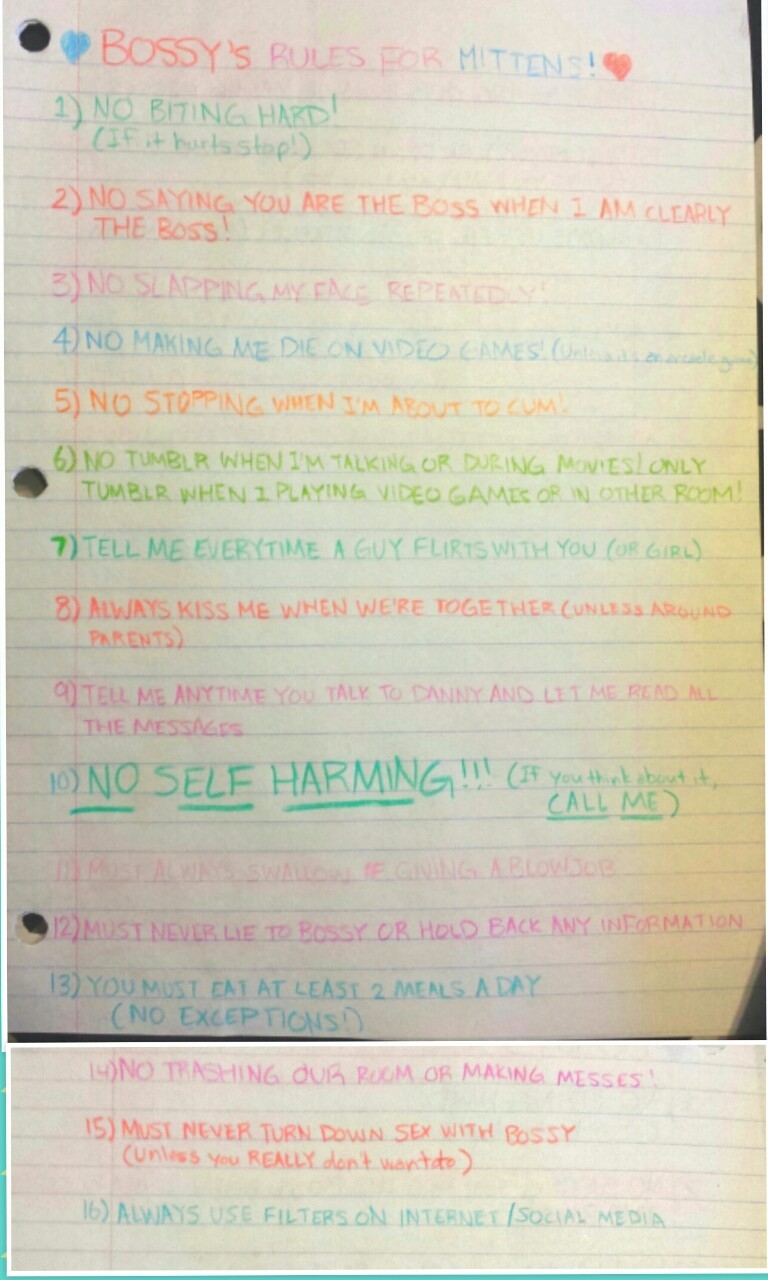 BOSSY'S RULES FOR MITTENS!
1) NO BITING HARD!
(If it hurts stop!)
2) NO SAYING YOU ARE THE BOSS WHEN I AM CLEARLY
THE BOSS!
3) NO SLAPPING MY FACE REPEATEDLY!
4) NO MAKING ME DIE ON VIDEO GAMES! (Unless it's an arcade game)
5) NO STOPPING WHEN I'M ABOUT TO CUM!
6) NO TUMBLR WHEN I'M TALKING OR DURING MOVIES! ONLY
TUMBLR WHEN I PLAYING VIDEO GAMES OR IN OTHER ROOM!
7) TELL ME EVERYTIME A GUY FLIRTS WITH YOU (OR GIRL)
8) ALWAYS KISS ME WHEN WE'RE TOGETHER (UNLESS AROUND
PARENTS)
9) TELL ME ANYTIME YOU TALK TO DANNY AND LET ME READ ALL
THE MESSAGES
10) NO SELF HARMING!!! (If you think about it,
CALL ME)
11) MUST ALWAYS SWALLOW IF GIVING A BLOWJOB
12) MUST NEVER LIE TO BOSSY OR HOLD BACK ANY INFORMATION
13) YOU MUST EAT AT LEAST 2 MEALS A DAY
(NO EXCEPTIONS!)
14) NO TRASHING OUR ROOM OR MAKING MESSES!
15) MUST NEVER TURN DOWN SEX WITH BOSSY
(Unless you REALLY don't want to)
16) ALWAYS USE FILTERS ON INTERNET/SOCIAL MEDIA